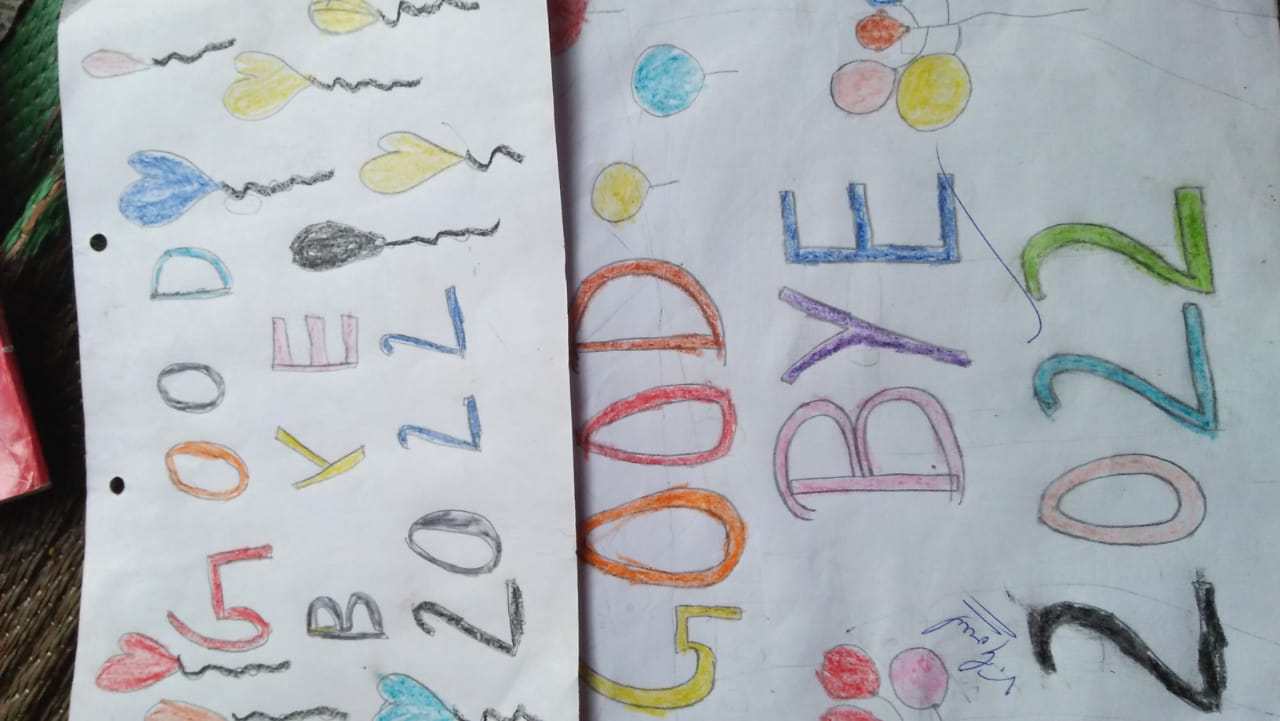 GOOD
BYE
2022
GOOD
BYE
2022